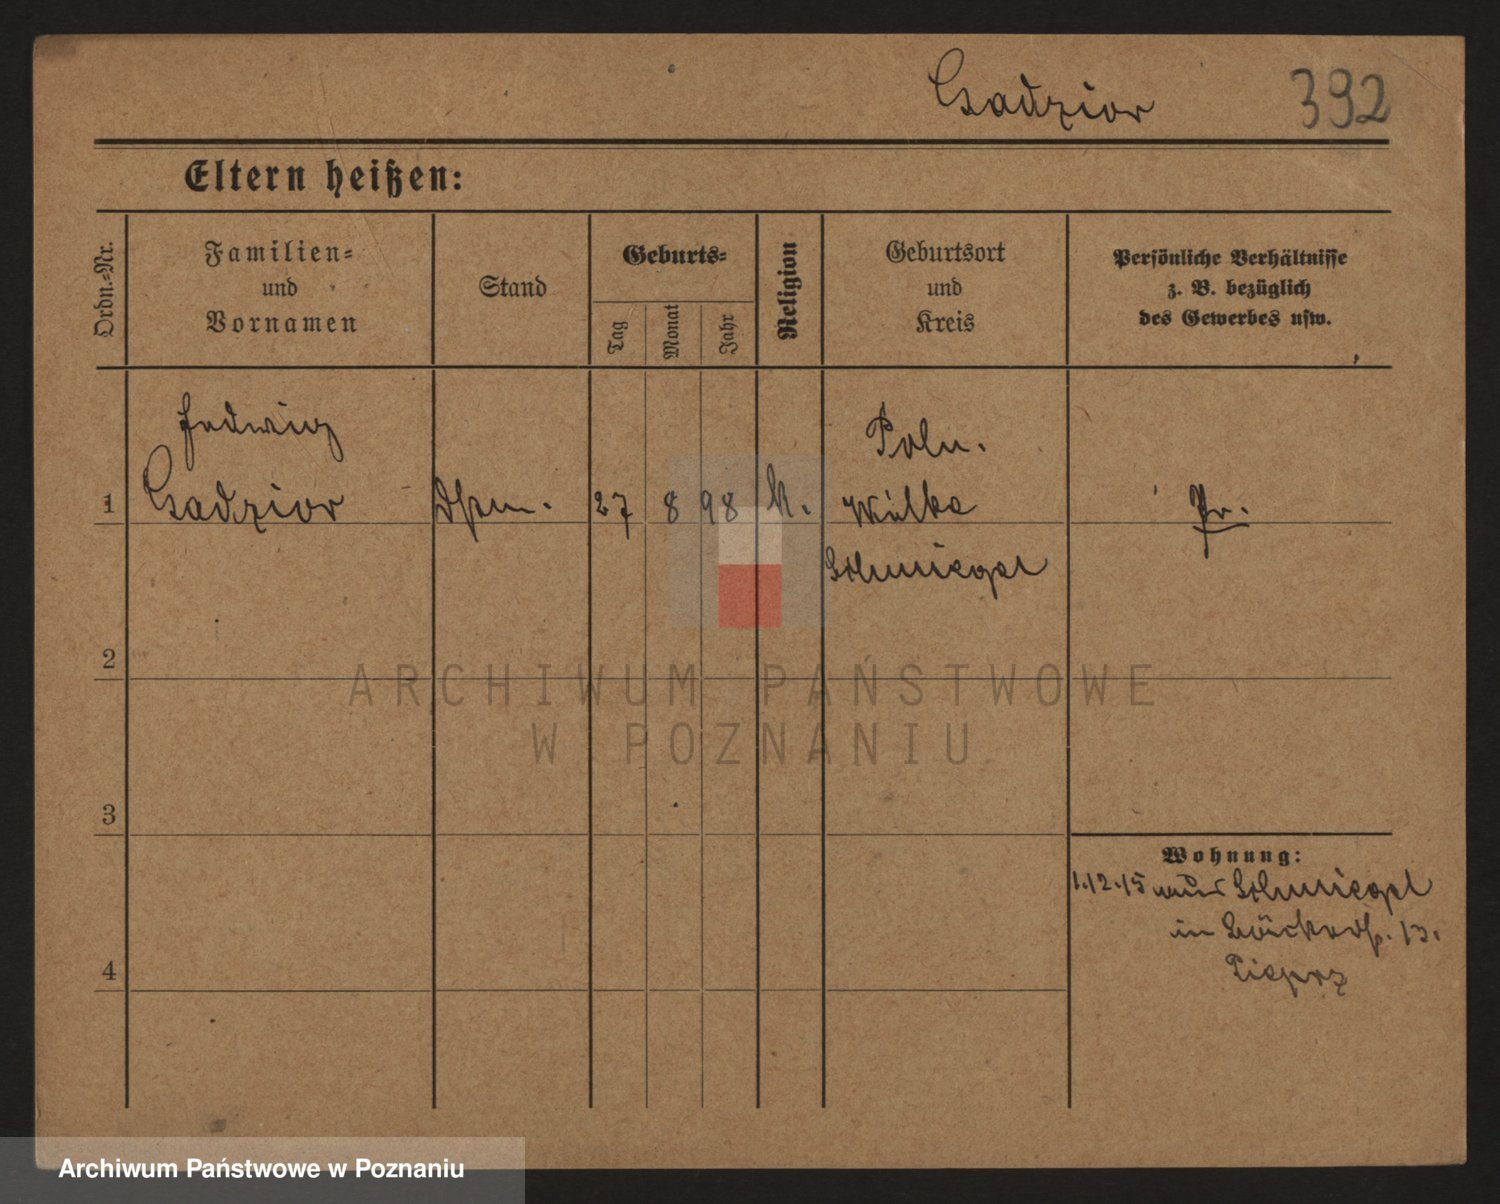 Gadzior 392
Eltern heißen:
Ordn.-Nr.
Familien-
und
Vornamen
Stand
Geburts-
Tag
Monat
Jahr
Religion
Geburtsort
und
Kreis
Persönliche Verhältnisse
z. B. bezüglich
des Gewerbes usw.
Hedwig
Poln.
1 Gadzior 27 8 98 k. Wilke Pr.
Schmiegel
2
ARCHIWUM PAŃSTWOWE
W POZNANIU
3
Wohnung:
1.12.15 aus Schmiegel
in 13.
4
Pieprz
Archiwum Państwowe w Poznaniu